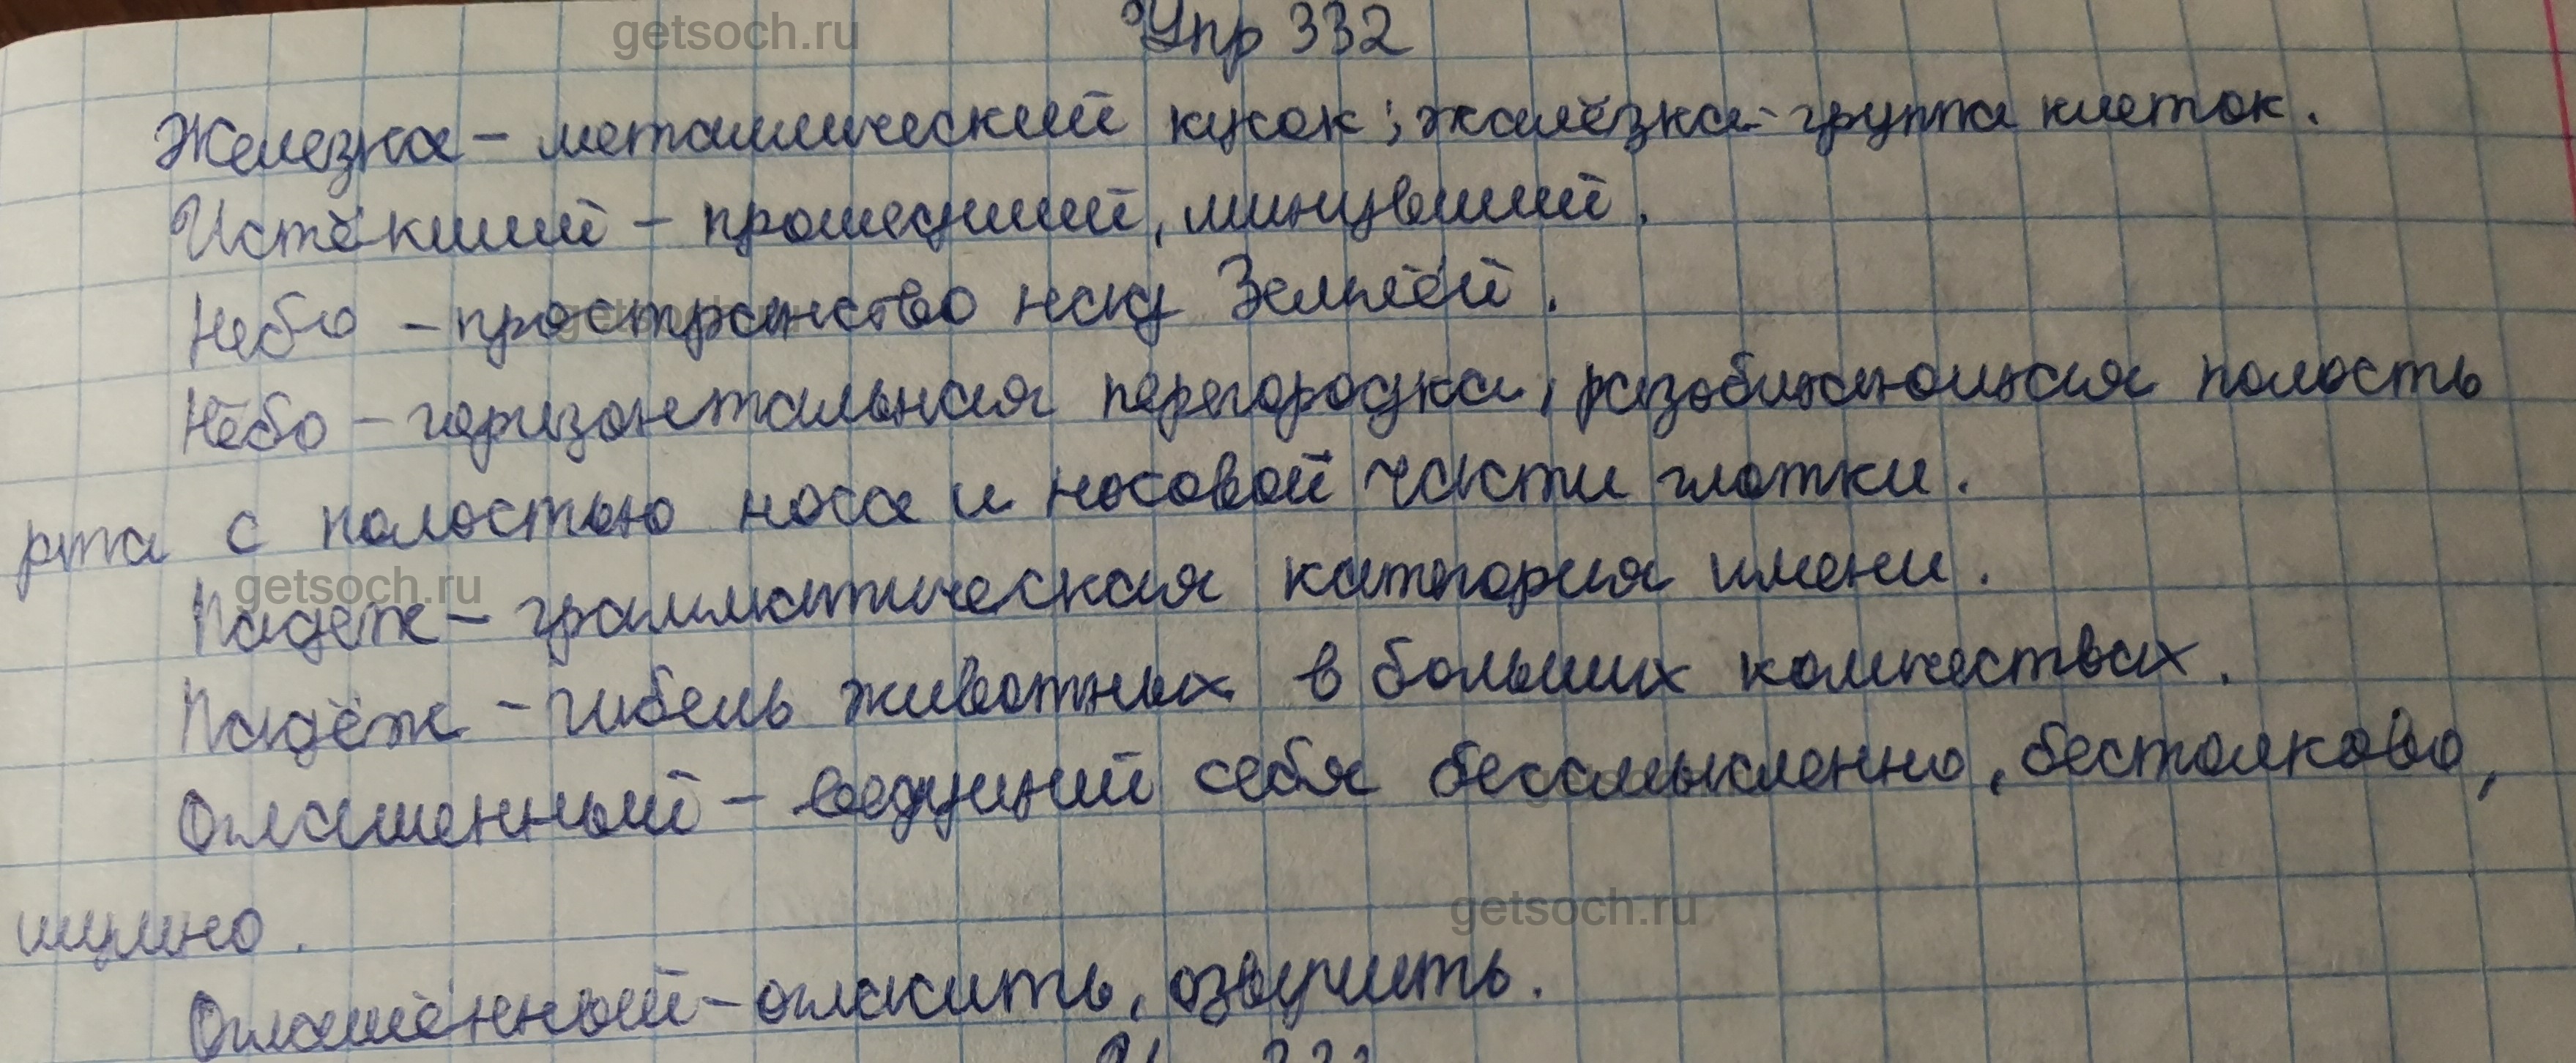 getsoch.ru
Упр 332
Железка – металлический кусок; жалёзка – группа клеток.
Истёкший – прошедший, минувший.
Небо – пространство над Землёй.
getsoch.ru
Нёбо – горизонтальная перегородка, разобщающая полость
рта с полостью носа и носовой части глотки.
getsoch.ru
Падеж – грамматическая категория имени.
Падёж – гибель животных в больших количествах.
Оглашенный – ведущий себя бессмысленно, бестолково,
шумно.
getsoch.ru
Оглашённый – огласить, озвучить.